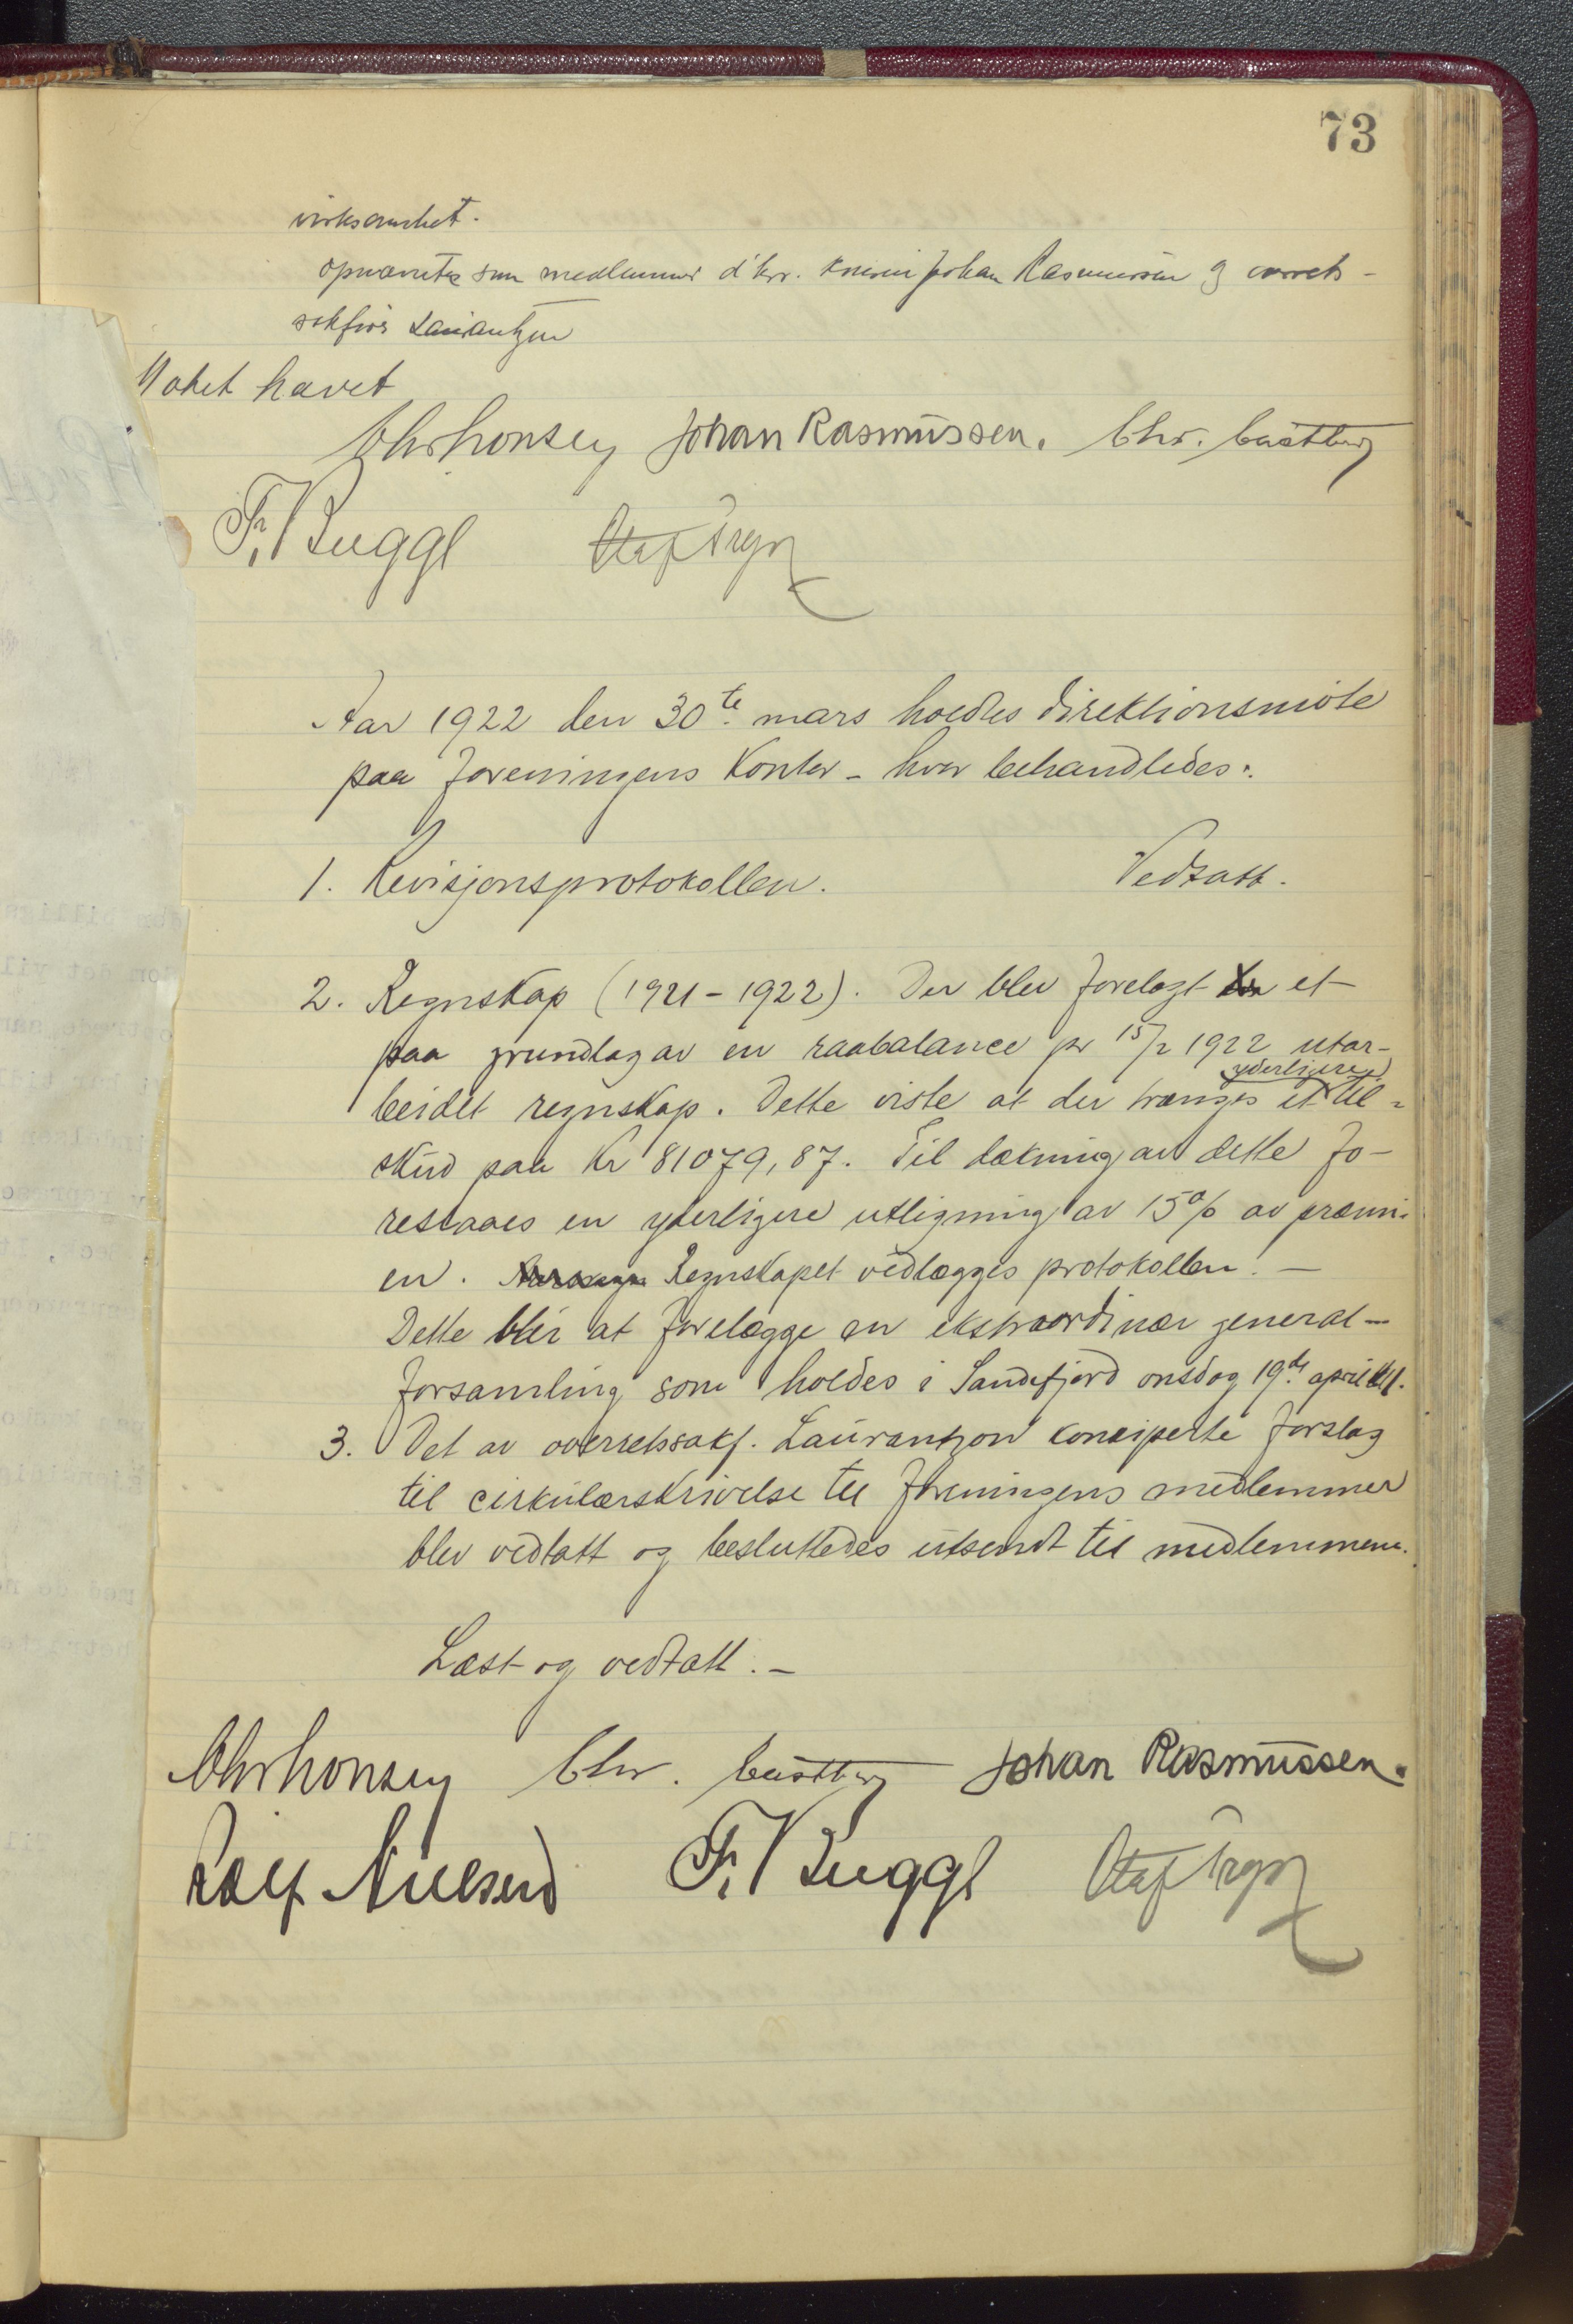 73
virksomhet.
opnævntes som medlemmer d'hrr. Johan Rasmussen og overrets-
sakfører
Møtet hævet
Johan Rasmussen. Chr.
F. Bugge Olaf
Aar 1922 den 30te mars holdtes direktionsmøte
paa foreningens kontor - hvor behandledes:
1. Revisjonsprotokollen. Vedtatt.
2. Regnskap (1921-1922). Der blev forelagt et
paa grundlag av en raabalance pr 15/2 1922 utar-
yderligere
beidet regnskap. Dette viste at der trænges et til-
skud paa Kr 81079,87. Til dækning av dette fo-
reslaaes en yderligere utligning av 15% av præmi-
en. Regnskapet vedlægges protokollen. -
Dette blir at forelægge en ekstraordinær general-
forsamling som holdes i Sandefjord onsdag 19de april
3. Det av overretssakf. Laurantzon konsiperte forslag
til cirkulærskrivelse til foreningens medlemmer
blev vedtatt og besluttedes utsendt til medlemmene.
Læst og vedtatt. -
Chr. Johan Rasmussen.
Rolf Nielsen F. Bugge Olaf